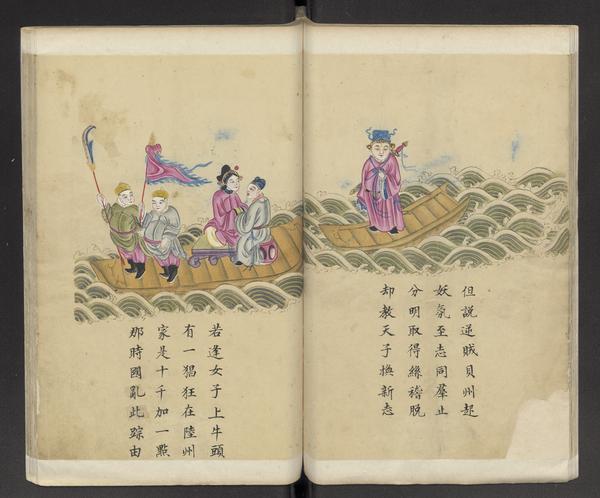 但説逆賊貝州起
妖氛至志同羣止
分明取得絲稽脱
却教天子換新志
若逢女子上牛頭
有一猖狂在陸州
家是十千加一點
那時國亂此踪由